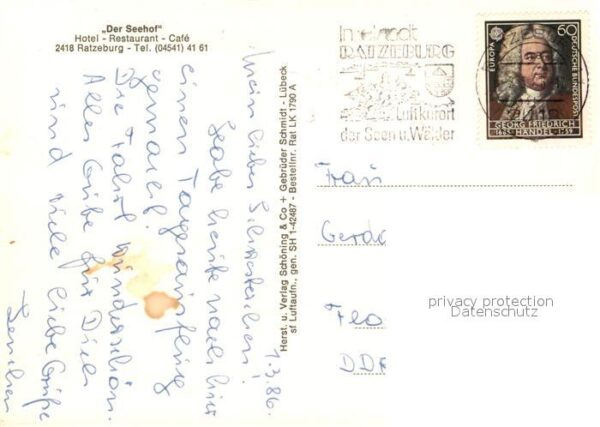 „Der Seehof"
Hotel - Restaurant - Café
2418 Ratzeburg - Tel. (04541) 41 61
1.3.86.
Mein liebes
habe heute nach hier
einen Tagesausflug
gemacht.
Die Fahrt wunderschön.
Alles Gute für Dich
und viele liebe Grüße
Herst. u. Verlag Schöning & Co + Gebrüder Schmidt - Lübeck
sf Luftaufn., gen. SH 1-42487 - Bestellnr. Rat LK 1790 A
Inselstadt
RATZEBURG
Luftkurort
der Seen u. Wälder
EUROPA
60
DEUTSCHE BUNDESPOST
GEORG FRIEDRICH
1685 HÄNDEL 1759
Frau
Gerda
Flo
DDR
privacy protection
Datenschutz